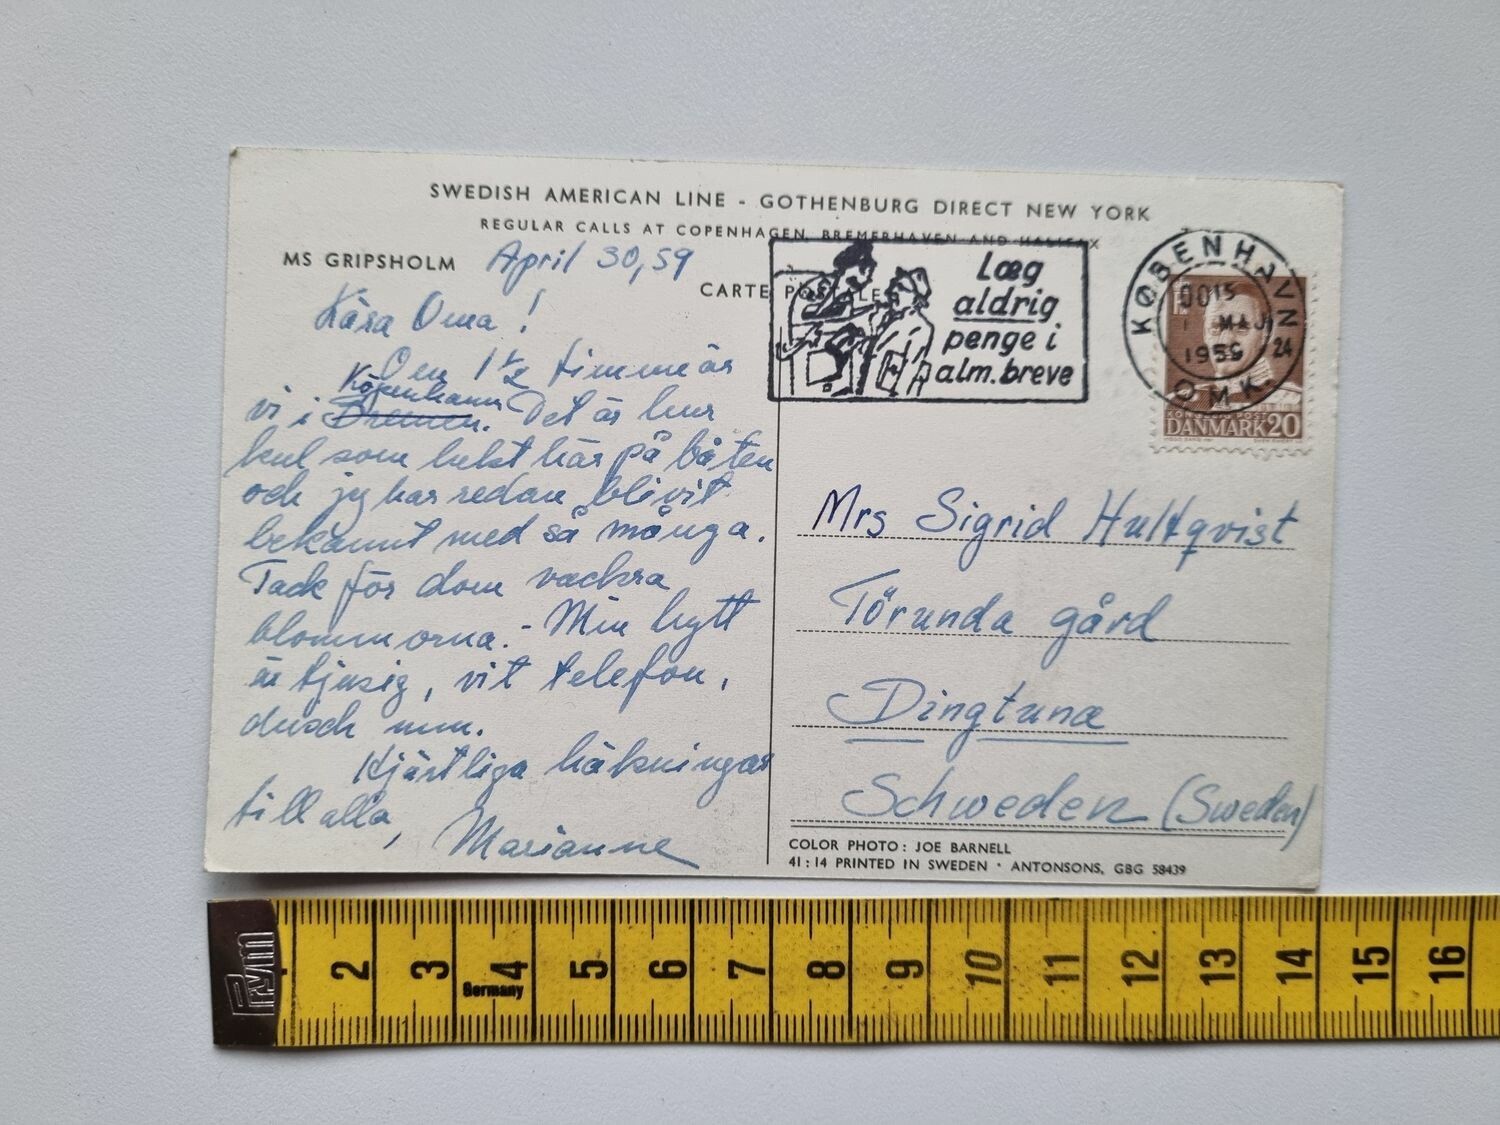 SWEDISH AMERICAN LINE - GOTHENBURG DIRECT NEW YORK
REGULAR CALLS AT COPENHAGEN, BREMERHAVEN AND HALIFAX
MS GRIPSHOLM
April 30, 59
CARTE POSTALE
Kära Oma!
Om 1 1/2 timme är
Köpenhamn
vi i Bremen. Det är hur
kul som helst här på båten
och jag har redan blivit
bekannt med så många.
Tack för dom vackra
blommorna. - Min hytt
är tjusig, vit telefon,
dusch mm.
Hjärtliga hälsningar
till alla,
Marianne
Læg
aldrig
penge i
alm. breve
KØBENHAVN
0015
1 MAJ
1959
24
OMK.
DANMARK 20
Mrs Sigrid Hultqvist
Törunda gård
Dingtuna
Schweden (Sweden)
COLOR PHOTO: JOE BARNELL
41:14 PRINTED IN SWEDEN · ANTONSONS, GBG 58439
Prym
2 3 4 5 6 7 8 9 10 11 12 13 14 15 16
Germany